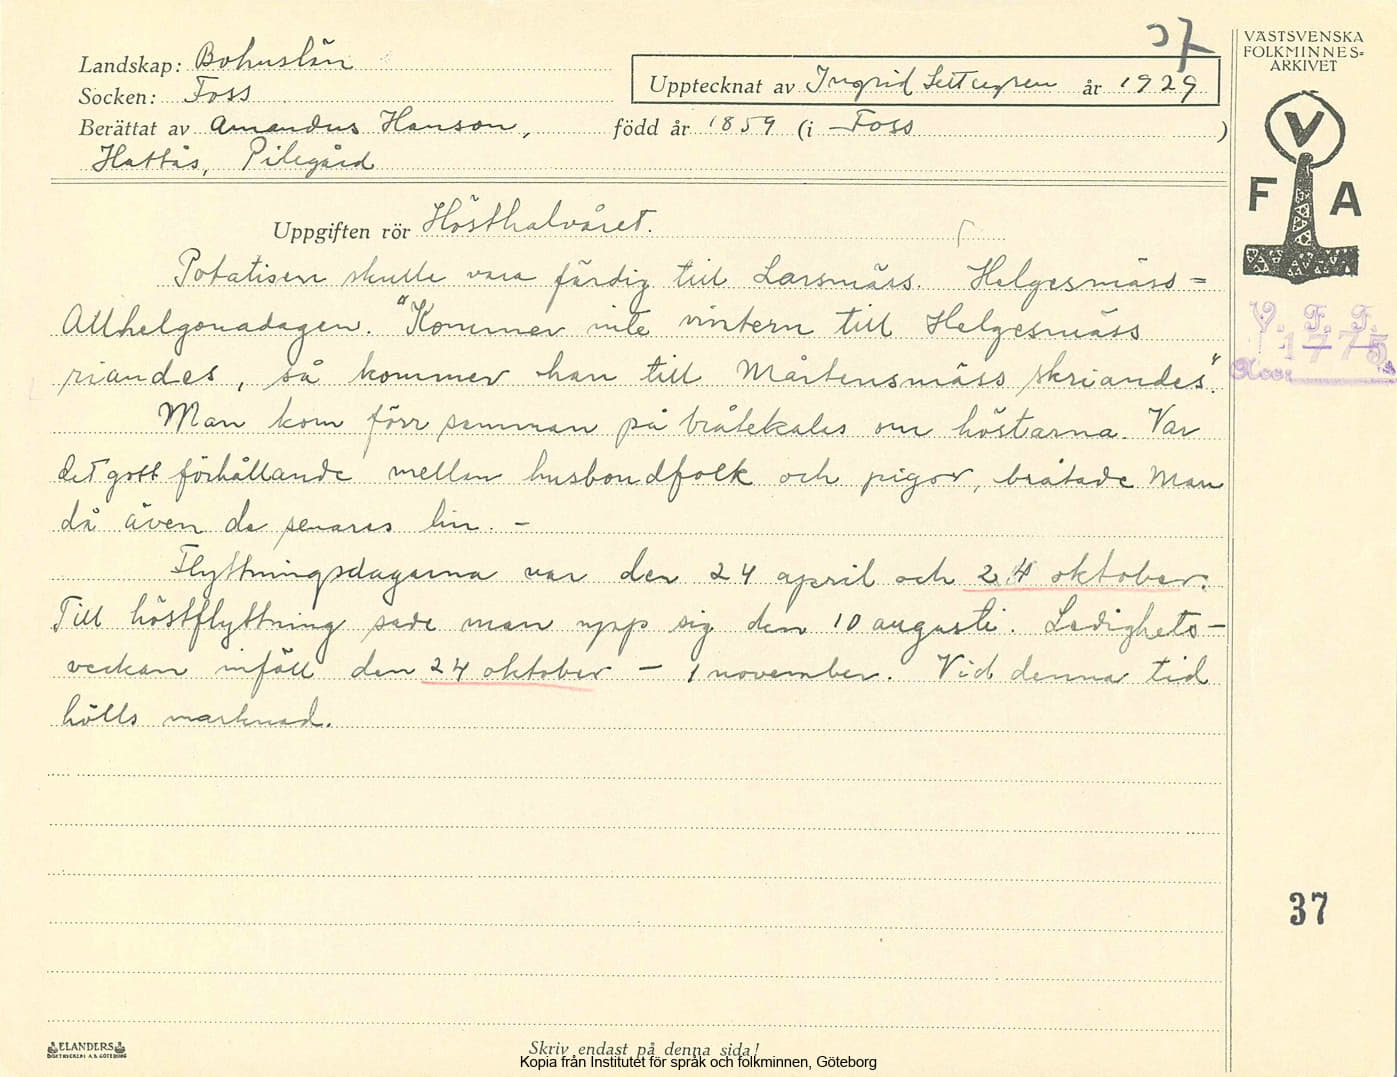 37
VÄSTSVENSKA
FOLKMINNES=
ARKIVET
Landskap: Bohuslän
Socken: Foss
Upptecknat av Ingrid år 1929
Berättat av Amandus Hanson, född år 1859 (i Foss )
Hattås, Pilegård
V
F A
Uppgiften rör Hösthalvåret.
Potatisen skulle vara färdig till Larsmäss. Helgesmäss =
Allhelgonadagen. "Kommer inte vintern till Helgesmäss
riandes, så kommer han till Mårtensmäss skriandes".
V. F. F.
1775
Acc:
Man kom förr samman på bråtekalas om höstarna. Var
det gott förhållande mellan husbondfolk och pigor, bråtade man
då även de senares lin. —
Flyttningsdagarna var den 24 april och 24 oktober.
Till höstflyttning sade man upp sig den 10 augusti. Ledighets-
veckan inföll den 24 oktober — 1 november. Vid denna tid
hölls marknad.
37
ELANDERS
BOKTRYCKERI A.B. GÖTEBORG
Skriv endast på denna sida!
Kopia från Institutet för språk och folkminnen, Göteborg